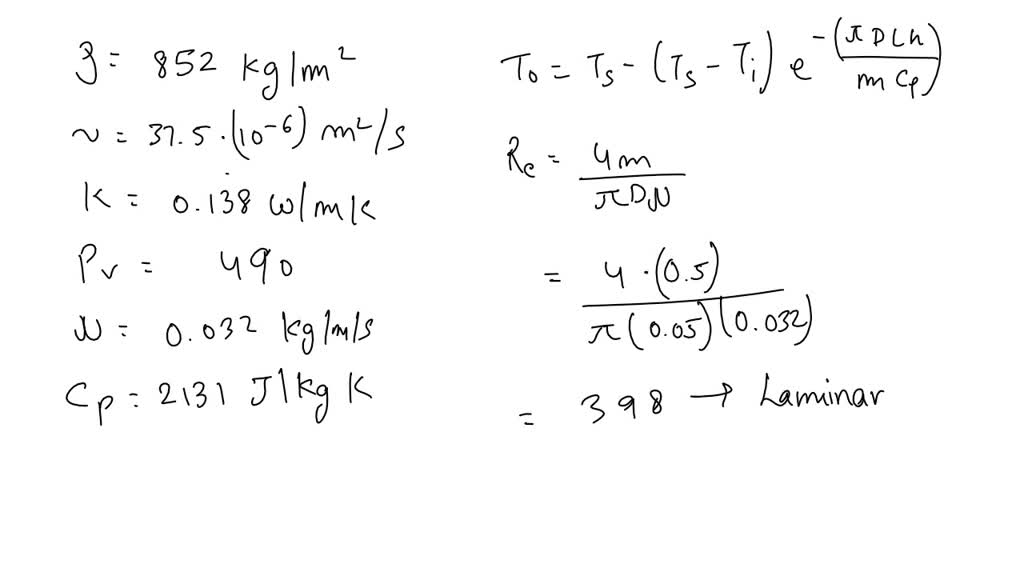 ρ = 852 kg/m²
ν = 37.5 · (10⁻⁶) m²/s
K = 0.138 W/mK
Pr = 490
μ = 0.032 kg/m/s
Cp = 2131 J/kg K
T₀ = Ts - (Ts - Ti) e^-(πDLh / m Cp)
Re = 4m / πDμ
= 4 · (0.5) / π(0.05)(0.032)
= 398 → Laminar